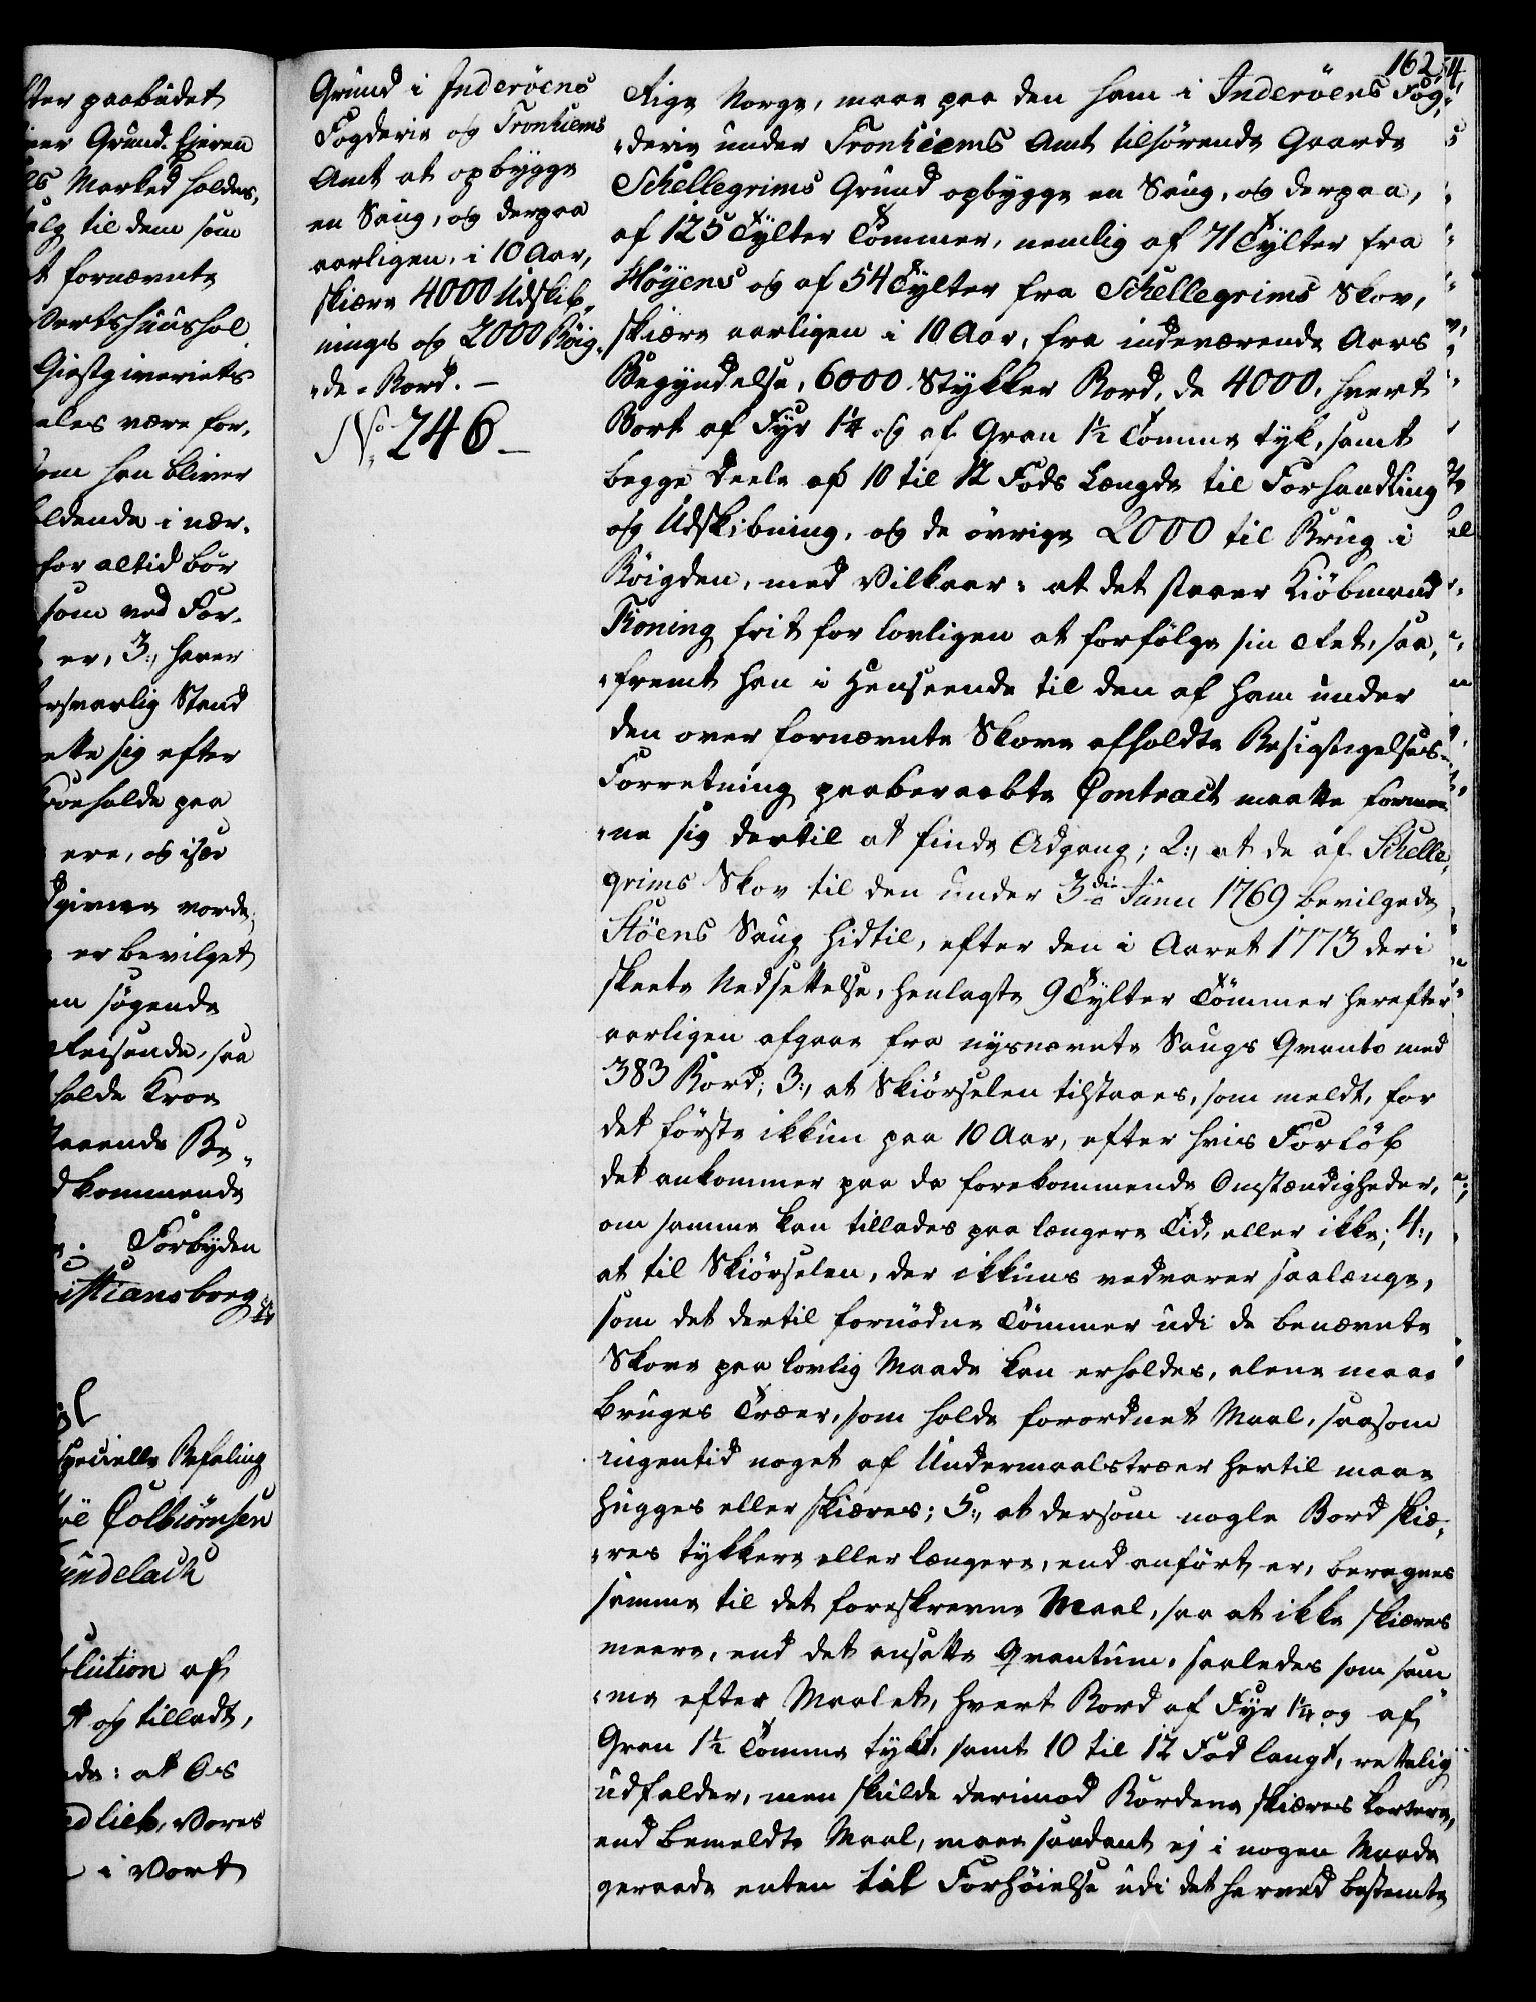 ter paabudet
Grund-Ejeren
Marked holdes,
til dem som
fornævnte
Vertshuushol
Giæstgiveriets
ales være for,
som han bliver
ldende i nær,
for altid bør
som ved For,
er, 3:, haver
rsvarlig Stand
ette sig efter
roeholde paa
ere, og især
givne vorde,
er bevilget
en søgende
Reisende, saa
holde Kroe
taaende Be,
d kommende
Forbyden
istiansborg
specielle Befaling
Colbiørnsen
undelach
olution af
og tilladt,
ade: at Os
ed lieb, Vores
i Vort
162
Grund i Inderöens
Fogderie og Tronhiems
Amt at opbygge
en Saug, og derpaa
aarligen, i 10 Aar,
skiære 4000 Udskib,
nings og 2000 Böig,
"de-Bord. -
No. 246 -
Rige Norge, maae paa den ham i Inderöens Fog,
"derie under Tronhiems Amt tilhörende Gaards
Schellegrims Grund opbygge en Saug, og derpaa,
af 125 Tylter Tömmer, nemlig af 71 Tylter fra
Höyens og af 54 Tylter fra Schellegrims Skov,
skiære aarligen i 10 Aar, fra indeværende Aars
Begyndelse, 6000 Stykker Bord, de 4000, hvert
Bort af Fyr 1¼ og af Gran 1½ Tomme tyk, samt
begge Deele af 10 til 12 Fods Længde til Forhandling
og Udskibning, og de övrige 2000 til Brug i
Böigden, med Vilkaar: at det staaer Kiöbmand
Troning frit for lovligen at forfölge sin Ret, saa,
"fremt han i Henseende til den af ham under
den over fornævnte Skove afholdte Besigtigelses-
Forretning paaberaabte Contract maatte formee
"ne sig dertil at finde Adgang; 2:, at de af Schelle,
grims Skov til den under 3die Junii 1769 bevilgede
Höens Saug hidtil, efter den i Aaret 1773 deri
skeete Nedsettelse, henlagte 9 Tylter Tömmer herefter
aarligen afgaae fra nysnævnte Saugs Qvanto med
383 Bord; 3:, at Skiörselen tilstaaes, som meldt, for
det förste ikkun paa 10 Aar, efter hvis Forlöb
det ankommer paa de forekommende Omstændigheder,
om samme kan tillades paa længere Tid, eller ikke; 4:,
at til Skiörselen, der ikkuns vedvarer saalænge,
som det dertil fornödne Tömmer udi de benævnte
Skove paa lovlig Maade kan erholdes, alene maae
bruges Træer, som holde forordnet Maal, saasom
ingentid noget af Undermaalstræer hertil maae
hugges eller skiæres; 5:, at dersom nogle Bord skiæ,
"res tykkere eller længere, end anfört er, beregnes
samme til det foreskrevne Maal, saa at ikke skiæres
meere, end det ansatte Qvantum, saaledes som sam
"me efter Maalet, hvert Bord af Fyr 1¼ og af
Gran 1½ Tomme tykt, samt 10 til 12 Fod langt, rettelig
udfalder, men skulde derimod Bordene skiæres kortere,
end bemeldte Maal, maae saadant ej i nogen Maade
geraade enten til Forhöielse udi det herved bestemte